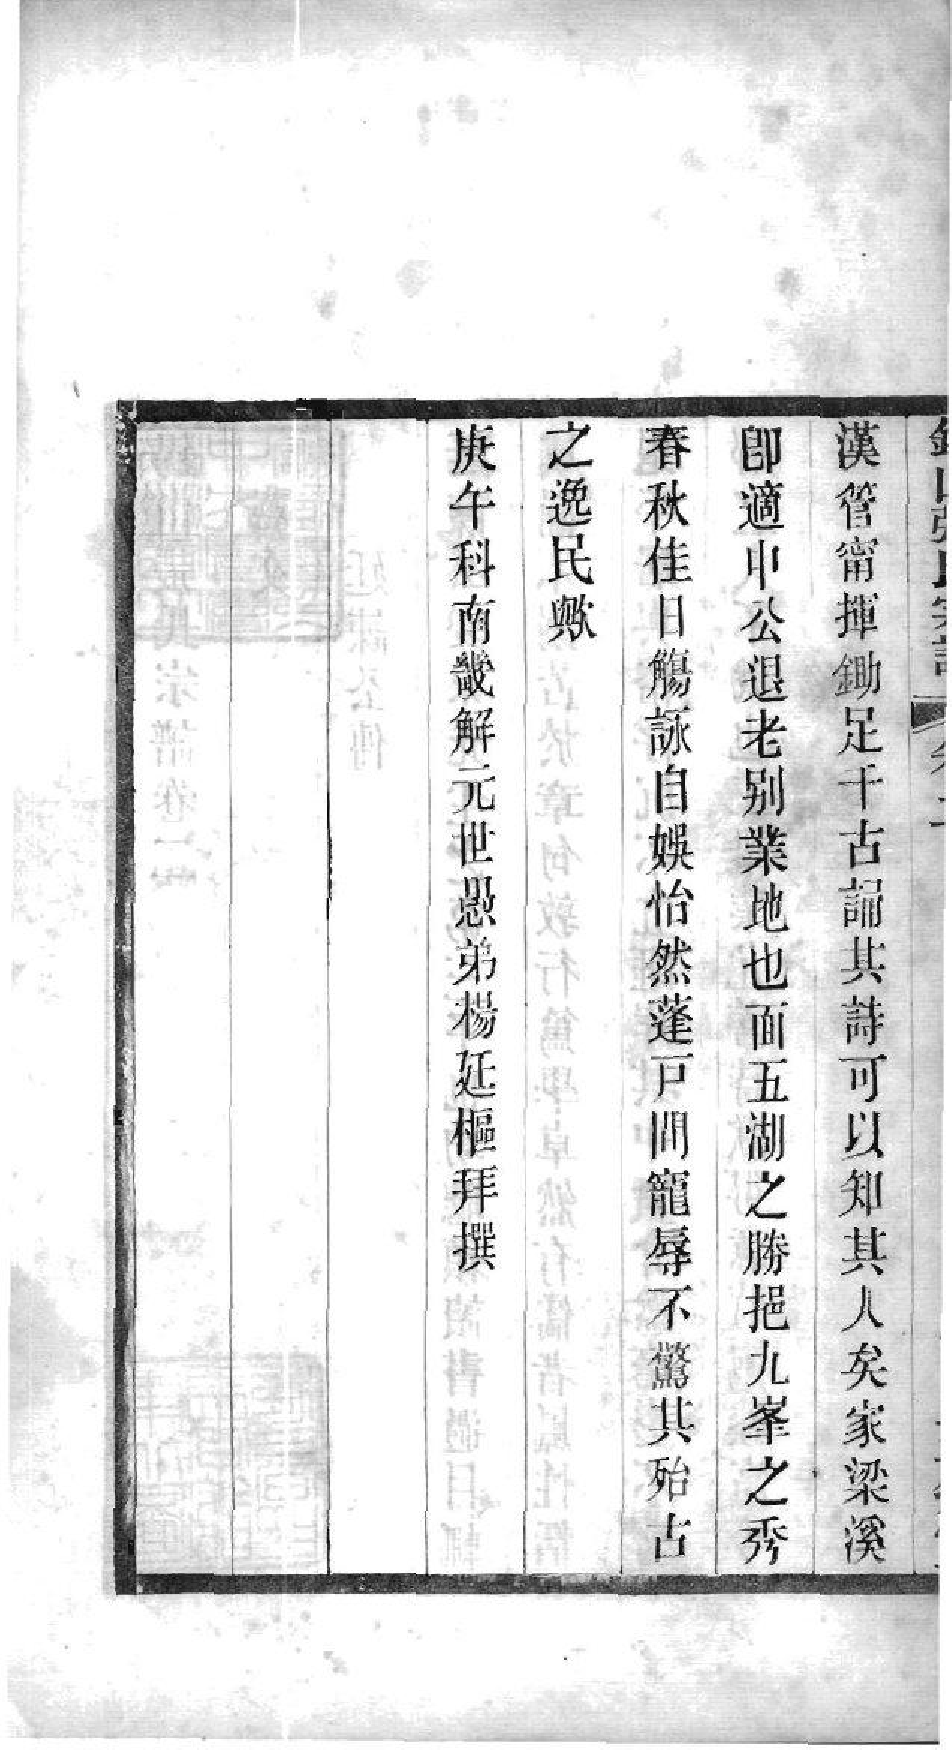 漢管甯揮鋤足千古誦其詩可以知其人矣家梁溪
卽適中公退老别業地也面五湖之勝挹九峯之秀
春秋佳日觴詠自娛怡然蓬戸間寵辱不驚其殆古
之逸民歟
庚午科南畿解元世愚弟楊延樞拜撰